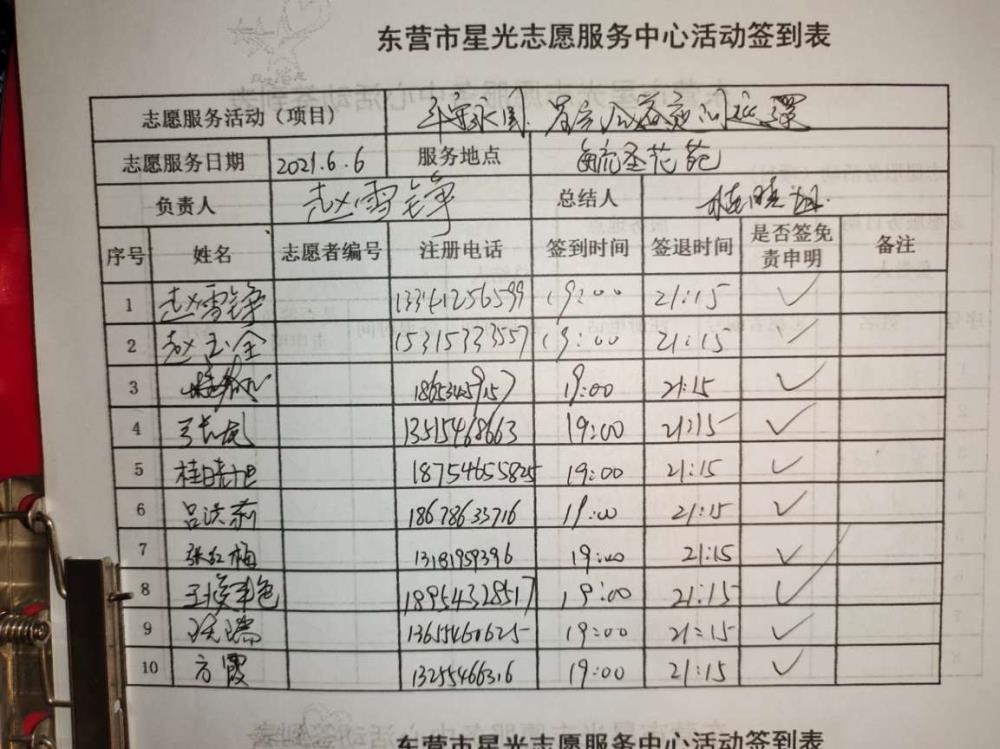 东营市星光志愿服务中心活动签到表
志愿服务活动（项目）
志愿服务日期 2021.6.6 服务地点
负责人 赵雪铮 总结人 桂晓旭
序号 姓名 志愿者编号 注册电话 签到时间 签退时间 是否签免责申明 备注
1 赵雪铮 13341256599 19:00 21:15 ✓
2 赵玉全 15315333557 19:00 21:15 ✓
3 18653459157 19:00 21:15 ✓
4 13515468663 19:00 21:15 ✓
5 桂晓旭 18754655825 19:00 21:15 ✓
6 吕洪莉 18678633716 19:00 21:15 ✓
7 张红梅 13181959396 19:00 21:15 ✓
8 18954328517 19:00 21:15 ✓
9 13655460625 19:00 21:15 ✓
10 方霞 13255466316 19:00 21:15 ✓
东营市星光志愿服务中心活动签到表